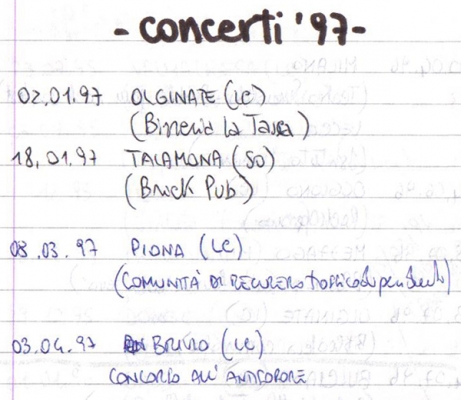 - concerti '97 -
02.01.97 OLGINATE (LC)
(Birreria la Tana)
18.01.97 TALAMONA (SO)
(Brock Pub)
08.03.97 PIONA (LC)
(COMUNITÀ DI RECUPERO tossicodipendenti)
03.04.97 (LC)
CONCORSO ALL'